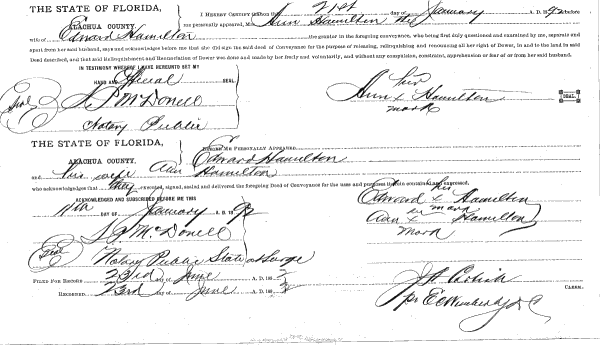 THE STATE OF FLORIDA,
ALACHUA COUNTY.
I HEREBY CERTIFY that on the 21st day of January A. D. 1892 before
me personally appeared, Mrs. Ann Hamilton the
wife of Edward Hamilton the grantor in the foregoing conveyance, who being first duly questioned and examined by me, separate and
apart from her said husband, says and acknowledges before me that she did sign the said deed of Conveyance for the purpose of releasing, relinquishing and renouncing all her right of Dower, in and to the land in said
Deed described, and that said Relinquishment and Renunciation of Dower was done and made by her freely and voluntarily, and without any compulsion, constraint, apprehension or fear of or from her said husband.
IN TESTIMONY WHEREOF I HAVE HEREUNTO SET MY
HAND AND Official SEAL
Seal McDonell
Notary Public
her
Ann x Hamilton SEAL.
mark
THE STATE OF FLORIDA,
ALACHUA COUNTY.
BEFORE ME PERSONALLY APPEARED Edward Hamilton
and his wife Ann Hamilton
who acknowledges that they executed, signed, sealed and delivered the foregoing Deed of Conveyance for the uses and purposes therein contained and expressed.
ACKNOWLEDGED AND SUBSCRIBED BEFORE ME THIS
DAY OF January A. D. 1892
McDonell
Seal
Notary Public State at Large
his
Edward x Hamilton
mark
her
Ann x Hamilton
mark
FILED FOR RECORD 23rd day of June A. D. 189
RECORDED 23rd day of June A. D. 189
CLERK.